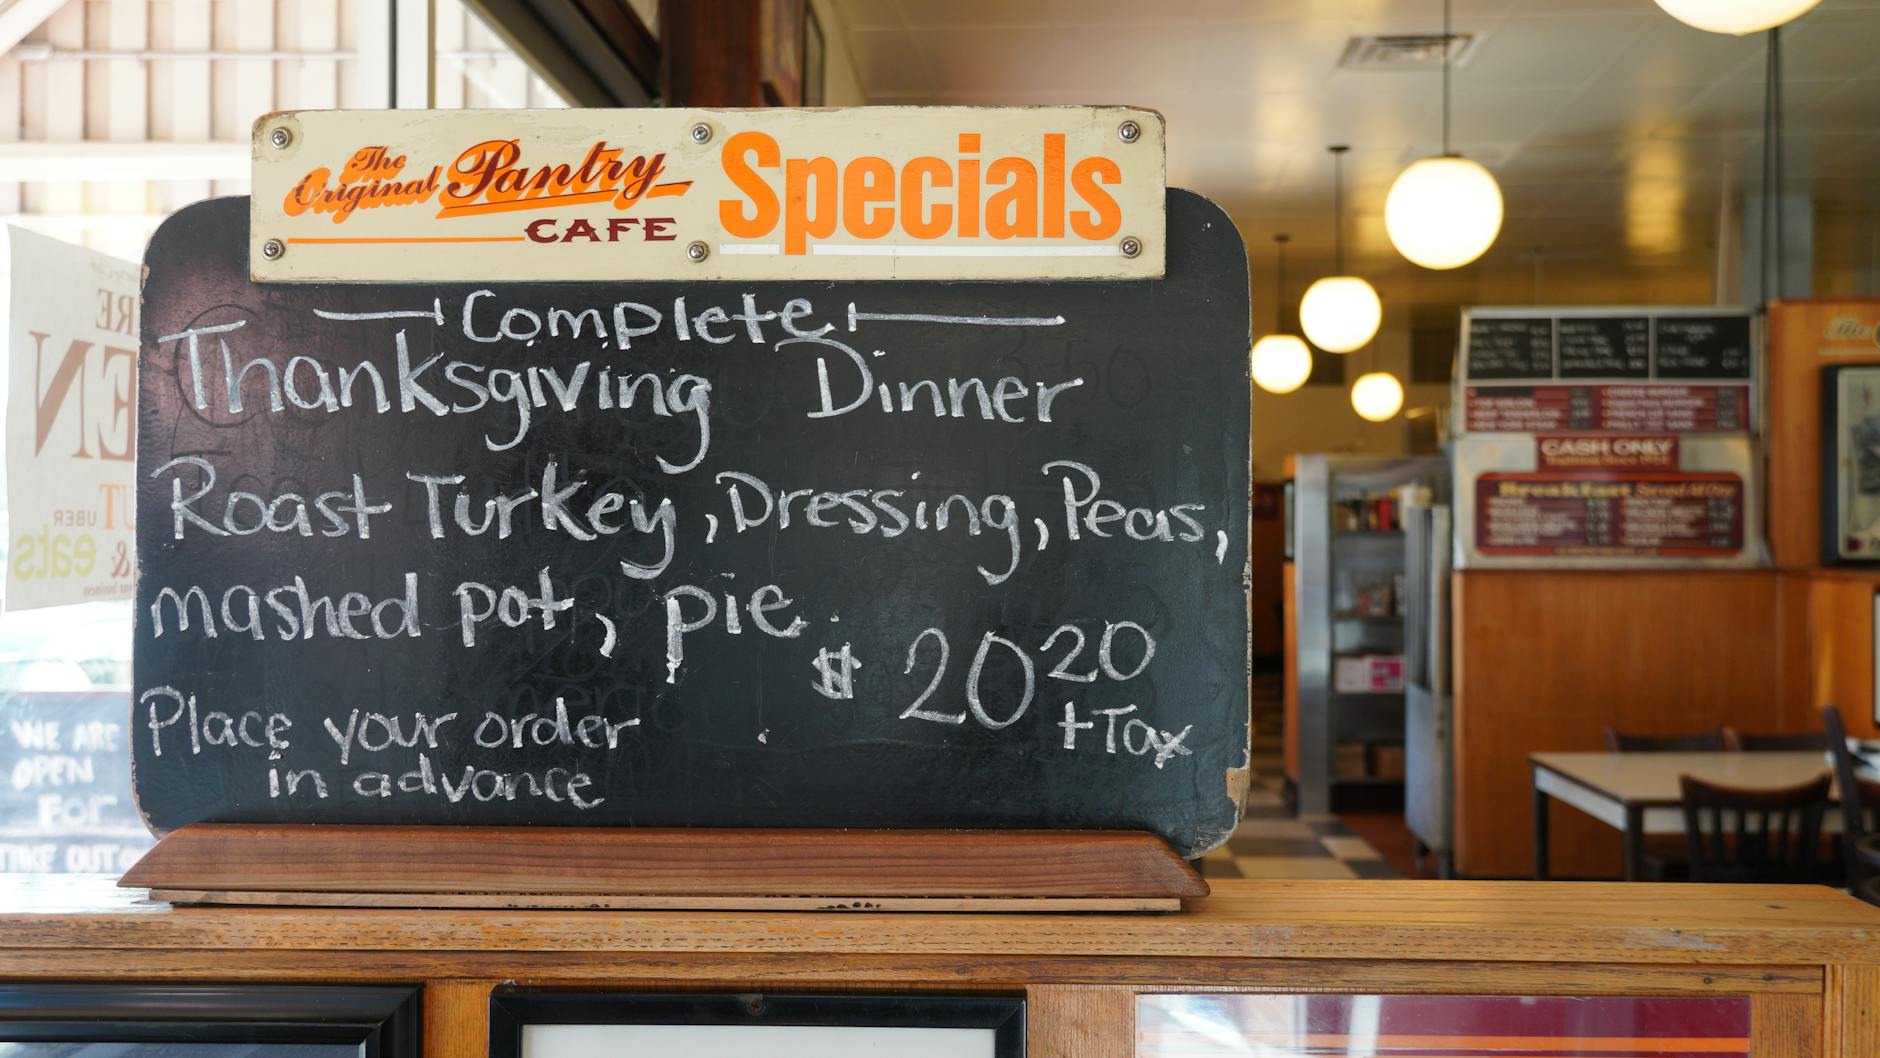 The
Original Pantry
CAFE
Specials
Complete
Thanksgiving Dinner
Roast Turkey, Dressing, Peas,
mashed pot, pie
$ 20 20
+Tax
Place your order
in advance
WE ARE
OPEN
FOR
TAKE OUT
EN
UBER
eats
&
CASH ONLY
Breakfast Served All Day